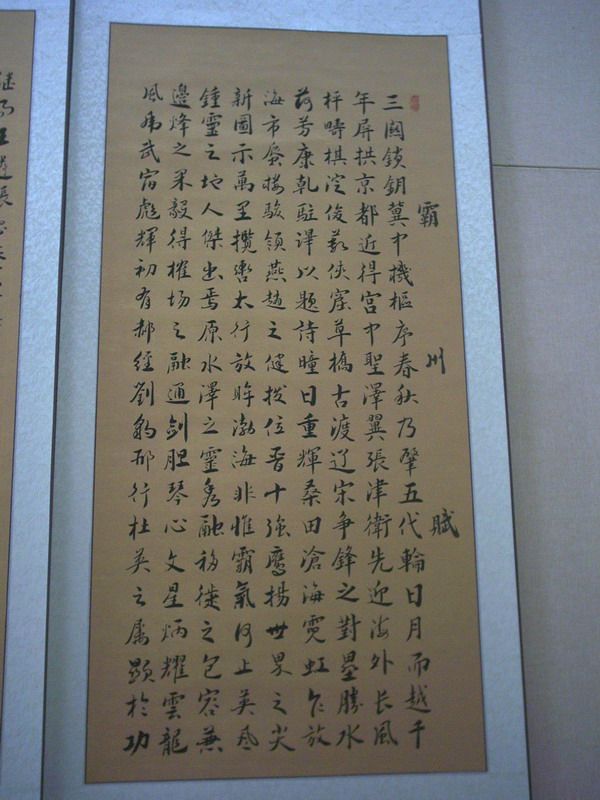 霸州賦
三関鎖鑰冀中機樞序春秋乃肇五代輪日月而越千
年屏拱京都近得宮中聖澤翼張津衛先迎海外长風
枰疇棋淀俊義俠窟草橋古渡辽宋争鋒之對壘勝水
荷芳康乾駐蹕以題詩曈日重輝桑田滄海霓虹乍放
海市蜃樓駿領燕趙之健拨位晋十強鷹揚世界之尖
新圖示萬里攬轡太行放眸渤海非惟霸氣何上英風
鍾靈之地人傑出焉原水澤之靈秀融移徙之包容兼
邊烽之果毅得榷場之融通剑胆琴心文星炳耀雲龍
風虎武宿彪輝初有郝經劉豹邢行杜英之屬顯於功